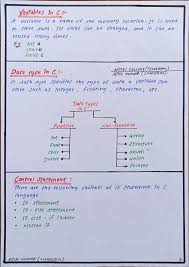 Variables In C :-
A variable is a name of the memory location. It is used
to store data. Its value can be changed, and it can be
reused many times.
Ex: int a
char b
float c
Data type In C :-
A data type specifies the type of data a variable can
store such as integer, floating, character, etc.
Data Types
Primitive
Non-Primitive
int
float
char
double
pointer
array
structure
union
pointer
Control Statement :-
There are the following variants of if statement in C
language
• If statement
• If - else statement
• If else - if ladder
• Nested if